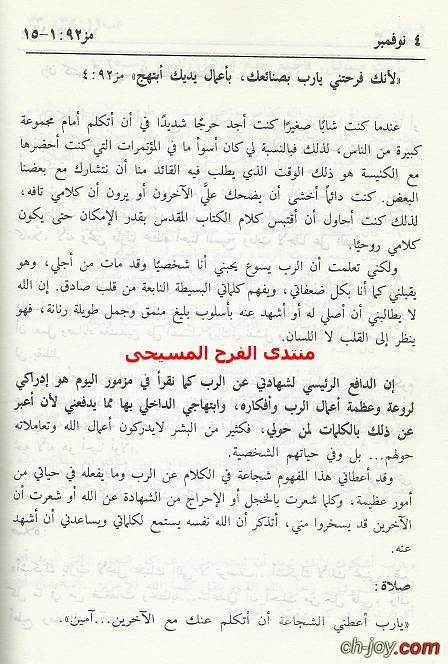 ٤ نوفمبر
مز٩٢:١-١٥
«لأنك فرحتني يارب بصنائعك، بأعمال يديك أبتهج» مز٩٢:٤
عندما كنت شابًا صغيرًا كنت أجد حرجًا شديدًا في أن أتكلم أمام مجموعة
كبيرة من الناس، لذلك فبالنسبة لي كان أسوأ ما في المؤتمرات التي كنت أحضرها
مع الكنيسة هو ذلك الوقت الذي يطلب فيه القائد منا أن نتشارك مع بعضنا
البعض. كنت دائمًا أخشى أن يضحك عليَّ الآخرون أو يرون أن كلامي تافه،
لذلك كنت أحاول أن أقتبس كلام الكتاب المقدس بقدر الإمكان حتى يكون
كلامي روحيًا.
ولكني تعلمت أن الرب يسوع يحبني أنا شخصيًا وقد مات من أجلي، وهو
يقبلني كما أنا بكل ضعفاتي، ويفهم كلماتي البسيطة النابعة من قلب صادق. إن الله
لا يطالبني أن أصلي له أو أشهد عنه بأسلوب بليغ منمق وجمل طويلة رنانة، فهو
ينظر إلى القلب لا اللسان.
منتدى الفرح المسيحى
إن الدافع الرئيسي لشهادتي عن الرب كما نقرأ في مزمور اليوم هو إدراكي
لروعة وعظمة أعمال الرب وأفكاره، وابتهاجي الداخلي بها مما يدفعني لأن أعبر
عن ذلك بالكلمات لمن حولي، فكثير من البشر لايدركون أعمال الله وتعاملاته
حولهم... بل وفي حياتهم الشخصية.
وقد أعطاني هذا المفهوم شجاعة في الكلام عن الرب وما يفعله في حياتي من
أمور عظيمة، وكلما شعرت بالخجل أو الإحراج من الشهادة عن الله أو شعرت أن
الآخرين قد يسخروا مني، أتذكر أن الله نفسه يستمع لكلماتي ويساعدني أن أشهد
عنه.
صلاة:
«يارب أعطني الشجاعة أن أتكلم عنك مع الآخرين...آمين».
ch-joy.com